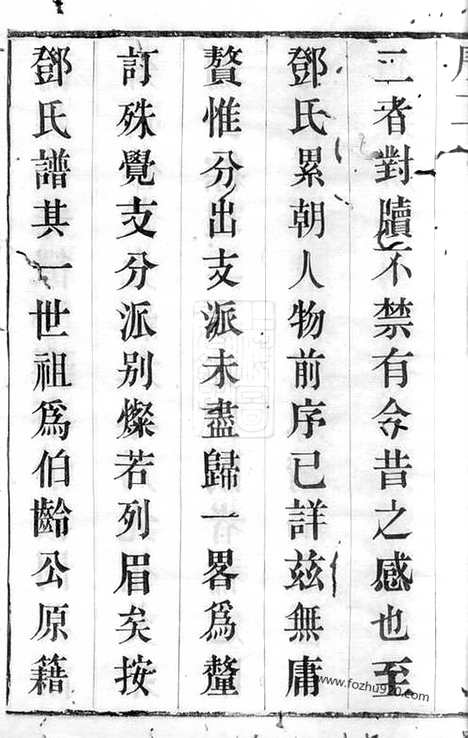 二者對牘不禁有今昔之感也至
鄧氏累朝人物前序已詳茲無庸
贅惟分出支派未盡歸一畧為釐
訂殊覺支分派別燦若列眉矣按
鄧氏譜其一世祖為伯齡公原籍
www.fozhu920.com